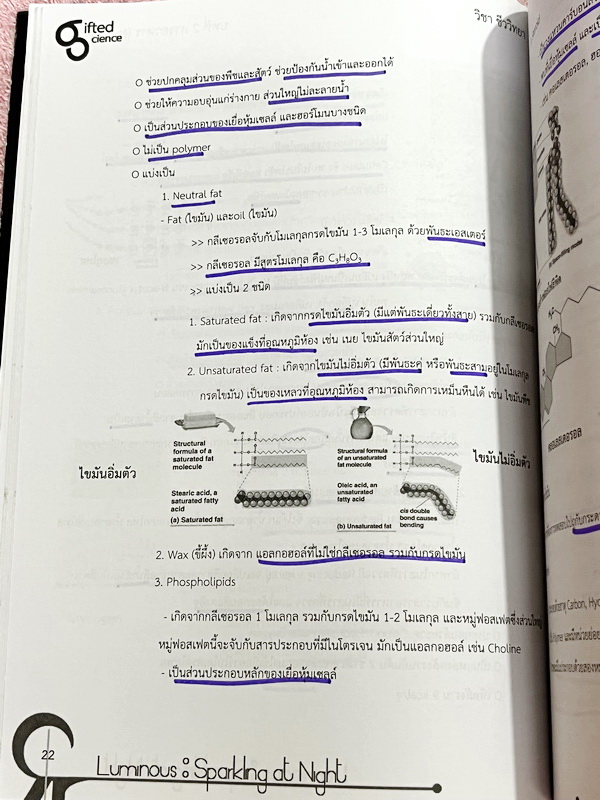 Gifted
Science
วิชา ชีววิทยา
O ช่วยปกคลุมส่วนของพืชและสัตว์ ช่วยป้องกันน้ำเข้าและออกได้
O ช่วยให้ความอบอุ่นแก่ร่างกาย ส่วนใหญ่ไม่ละลายน้ำ
O เป็นส่วนประกอบของเยื่อหุ้มเซลล์ และฮอร์โมนบางชนิด
O ไม่เป็น polymer
O แบ่งเป็น
1. Neutral fat
- Fat (ไขมัน) และoil (ไขมัน)
>> กลีเซอรอลจับกับโมเลกุลกรดไขมัน 1-3 โมเลกุล ด้วยพันธะเอสเตอร์
>> กลีเซอรอล มีสูตรโมเลกุล คือ C₃H₈O₃
>> แบ่งเป็น 2 ชนิด
1. Saturated fat : เกิดจากกรดไขมันอิ่มตัว (มีแต่พันธะเดี่ยวทั้งสาย) รวมกับกลีเซอรอล
มักเป็นของแข็งที่อุณหภูมิห้อง เช่น เนย ไขมันสัตว์ส่วนใหญ่
2. Unsaturated fat : เกิดจากไขมันไม่อิ่มตัว (มีพันธะคู่ หรือพันธะสามอยู่ในโมเลกุล
กรดไขมัน) เป็นของเหลวที่อุณหภูมิห้อง สามารถเกิดการเหม็นหืนได้ เช่น ไขมันพืช
Structural
formula of a
saturated fat
molecule
Structural formula
of an unsaturated
fat molecule
ไขมันอิ่มตัว
ไขมันไม่อิ่มตัว
Stearic acid, a
saturated fatty
acid
(a) Saturated fat
Oleic acid, an
unsaturated
fatty acid
cis double
bond causes
bending
(b) Unsaturated fat
2. Wax (ขี้ผึ้ง) เกิดจาก แอลกอฮอล์ที่ไม่ใช่กลีเซอรอล รวมกับกรดไขมัน
3. Phospholipids
- เกิดจากกลีเซอรอล 1 โมเลกุล รวมกับกรดไขมัน 1-2 โมเลกุล และหมู่ฟอสเฟตซึ่งส่วนใหญ่
หมู่ฟอสเฟตนี้จะจับกับสารประกอบที่มีไนโตรเจน มักเป็นแอลกอฮอล์ เช่น Choline
- เป็นส่วนประกอบหลักของเยื่อหุ้มเซลล์
22
Luminous : Sparkling at Night